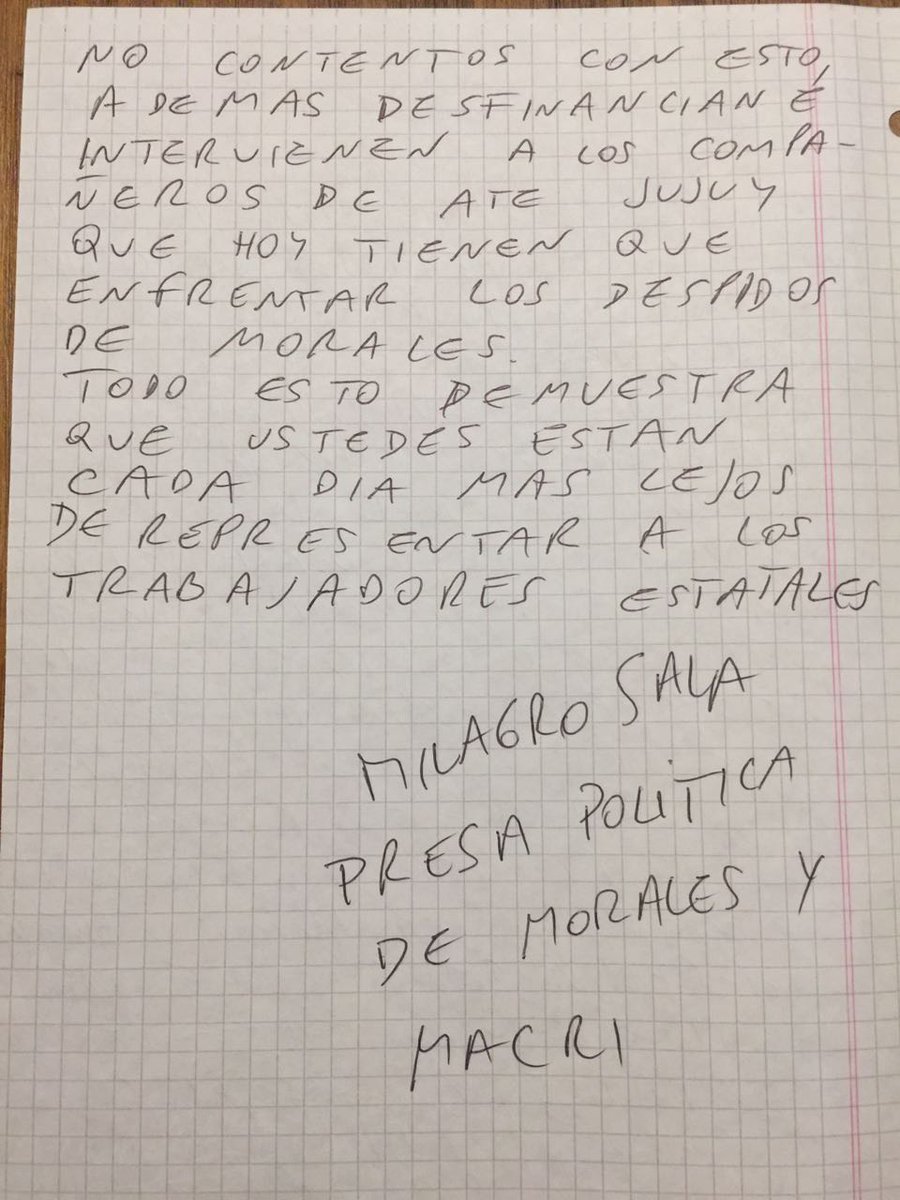 NO CONTENTOS CON ESTO,
ADEMAS DESFINANCIAN E
INTERVIENEN A LOS COMPA-
ÑEROS DE ATE JUJUY
QUE HOY TIENEN QUE
ENFRENTAR LOS DESPIDOS
DE MORALES.
TODO ESTO DEMUESTRA
QUE USTEDES ESTAN
CADA DIA MAS LEJOS
DE REPRESENTAR A LOS
TRABAJADORES ESTATALES
MILAGRO SALA
PRESA POLITICA
DE MORALES Y
MACRI